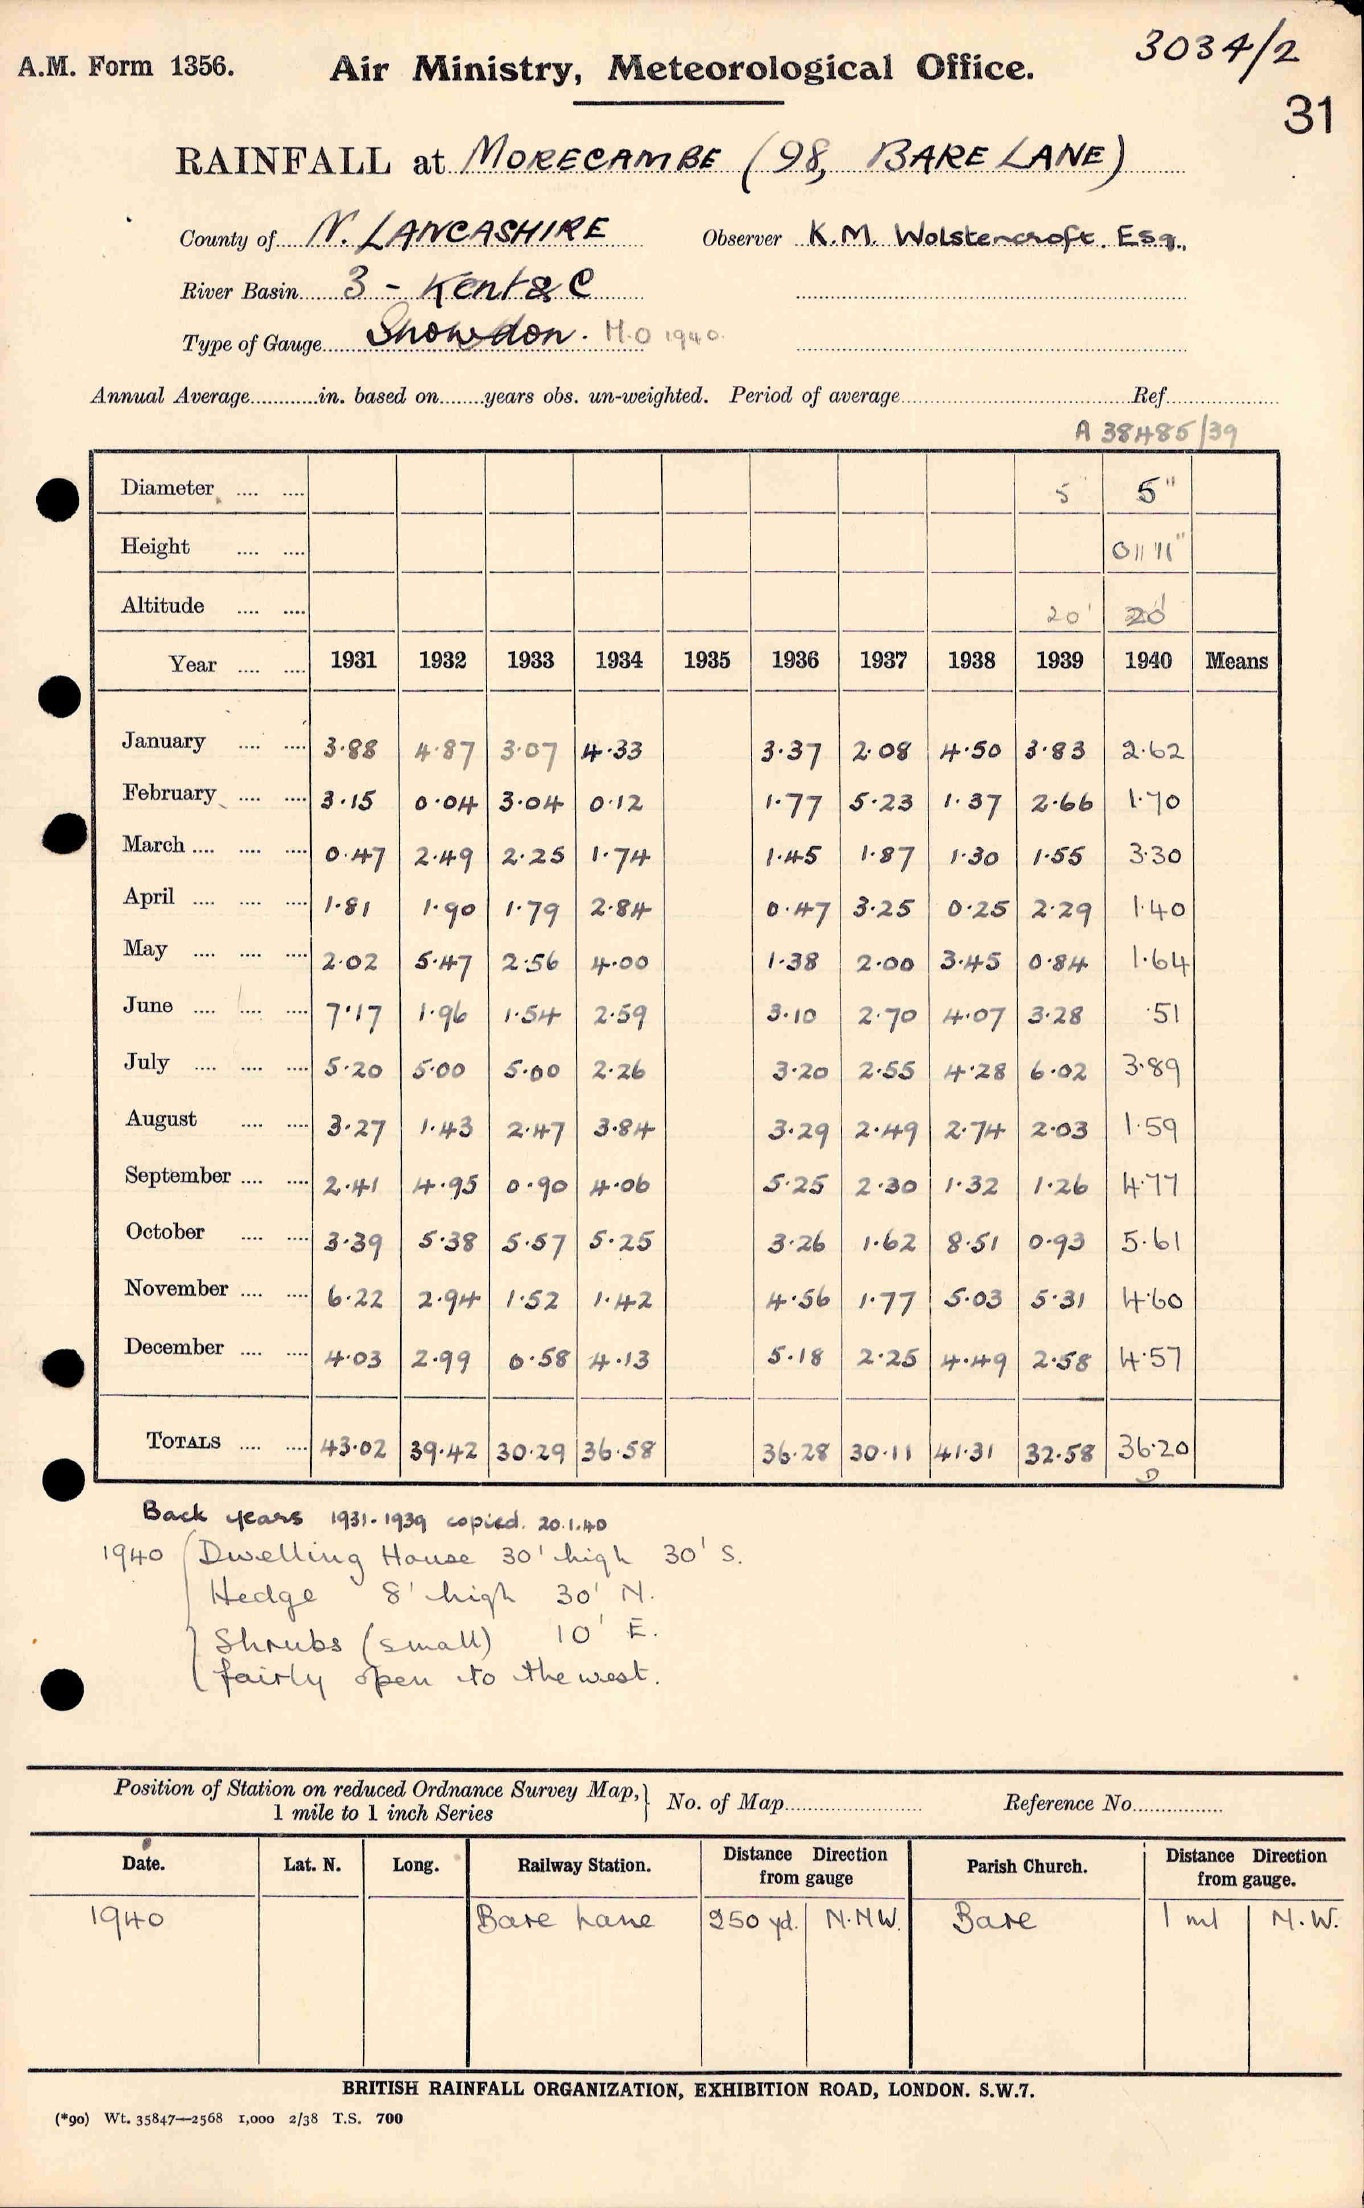 3034/2
A.M. Form 1356. Air Ministry, Meteorological Office.
31
RAINFALL at MORECAMBE (98, BARE LANE)
County of N. LANCASHIRE Observer K.M. Wolstencroft. Esq.,
River Basin 3 - Kent & C
Type of Gauge Snowdon. M.O 1940.
Annual Average in. based on years obs. un-weighted. Period of average Ref
A 38485/39
Diameter 5 5"
Height 0' 11"
Altitude 20' 20'
Year 1931 1932 1933 1934 1935 1936 1937 1938 1939 1940 Means
January 3·88 4·87 3·07 4·33 3·37 2·08 4·50 3·83 2·62
February 3·15 0·04 3·04 0·12 1·77 5·23 1·37 2·66 1·70
March 0·47 2·49 2·25 1·74 1·45 1·87 1·30 1·55 3·30
April 1·81 1·90 1·79 2·84 0·47 3·25 0·25 2·29 1·40
May 2·02 5·47 2·56 4·00 1·38 2·00 3·45 0·84 1·64
June 7·17 1·96 1·54 2·59 3·10 2·70 4·07 3·28 ·51
July 5·20 5·00 5·00 2·26 3·20 2·55 4·28 6·02 3·89
August 3·27 1·43 2·47 3·84 3·29 2·49 2·74 2·03 1·59
September 2·41 4·95 0·90 4·06 5·25 2·30 1·32 1·26 4·77
October 3·39 5·38 5·57 5·25 3·26 1·62 8·51 0·93 5·61
November 6·22 2·94 1·52 1·42 4·56 1·77 5·03 5·31 4·60
December 4·03 2·99 0·58 4·13 5·18 2·25 4·49 2·58 4·57
TOTALS 43·02 39·42 30·29 36·58 36·28 30·11 41·31 32·58 36·20
Back years 1931-1939 copied. 20.1.40
1940 Dwelling House 30' high 30' S.
Hedge 8' high 30' N.
Shrubs (small) 10' E.
fairly open to the west.
Position of Station on reduced Ordnance Survey Map, 1 mile to 1 inch Series } No. of Map Reference No.
Date. Lat. N. Long. Railway Station. Distance Direction from gauge Parish Church. Distance Direction from gauge.
1940 Bare Lane 250 yd. N.N.W. Bare 1 ml N.W.
BRITISH RAINFALL ORGANIZATION, EXHIBITION ROAD, LONDON. S.W.7.
(*90) Wt. 35847—2568 1,000 2/38 T.S. 700